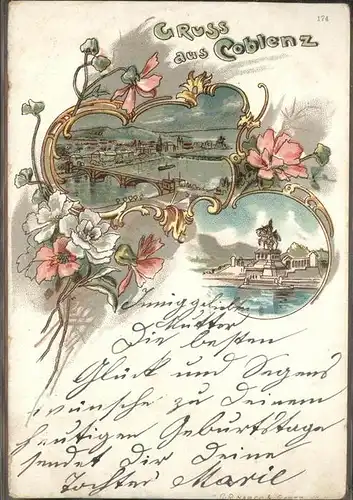 174
Gruss
aus Coblenz
Innig geliebte
Mutter
Die besten
Glück und Segens
wünsche zu Deinem
heutigen Geburtstage
sendet Dir Deine
Tochter Marie